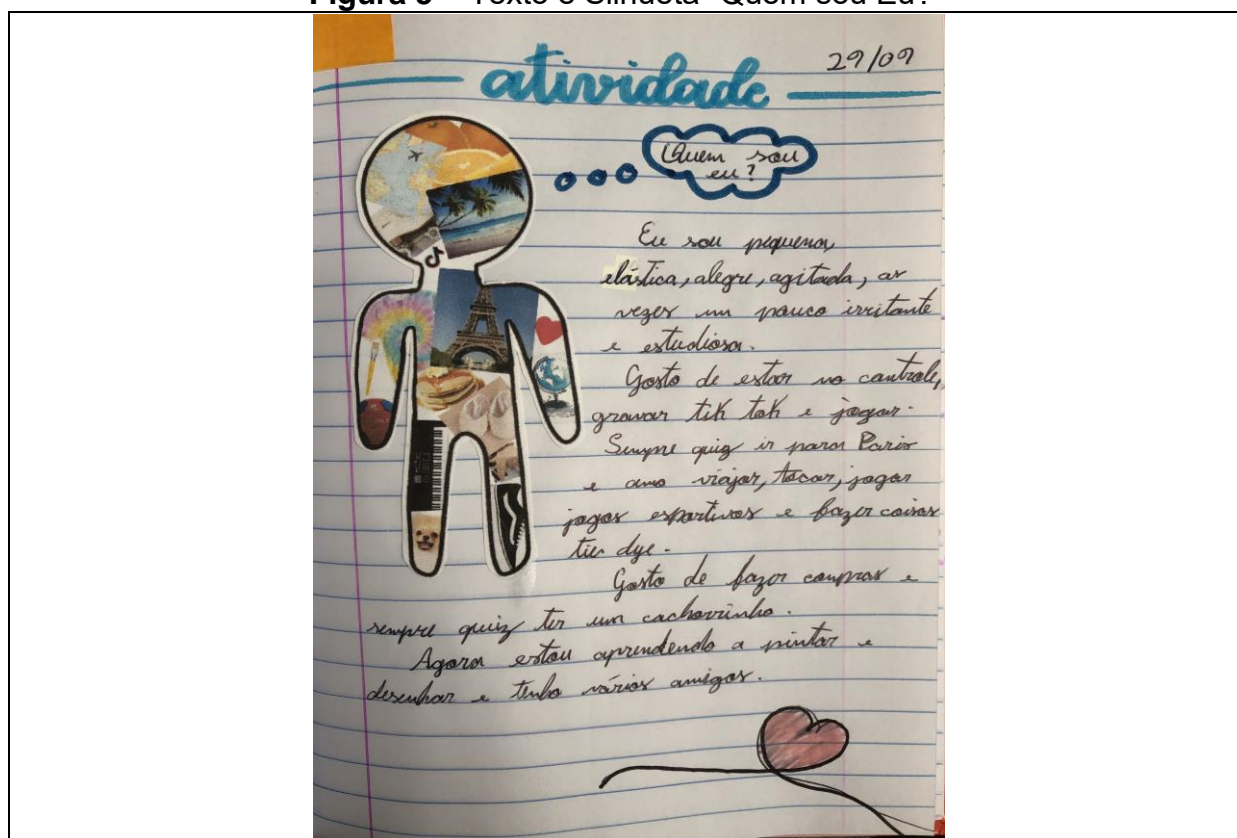 Figura 3 – Texto e Silhueta “Quem sou Eu?”
29/09
atividade
Quem sou
eu?
Eu sou pequena,
elástica, alegre, agitada, as
vezes um pouco irritante
e estudiosa.
Gosto de estar no controle,
gravar tik tok e jogar.
Sempre quiz ir para Paris
e amo viajar, tocar, jogar
jogos esportivos e fazer coisas
tie dye.
Gosto de fazer compras e
sempre quiz ter um cachorrinho.
Agora estou aprendendo a pintar e
desenhar e tenho vários amigos.